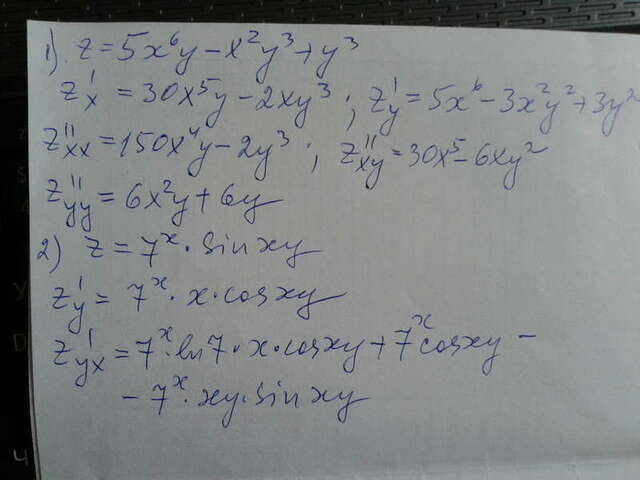 1). z = 5x⁶y - x²y³ + y³
z'ₓ = 30x⁵y - 2xy³ ; z'ᵧ = 5x⁶ - 3x²y² + 3y²
z''ₓₓ = 150x⁴y - 2y³ ; z''ₓᵧ = 30x⁵ - 6xy²
z''ᵧᵧ = 6x²y + 6y
2) z = 7ˣ · sin xy
z'ᵧ = 7ˣ · x · cos xy
z'ᵧₓ = 7ˣ · ln 7 · x · cos xy + 7ˣ cos xy -
- 7ˣ · xy · sin xy